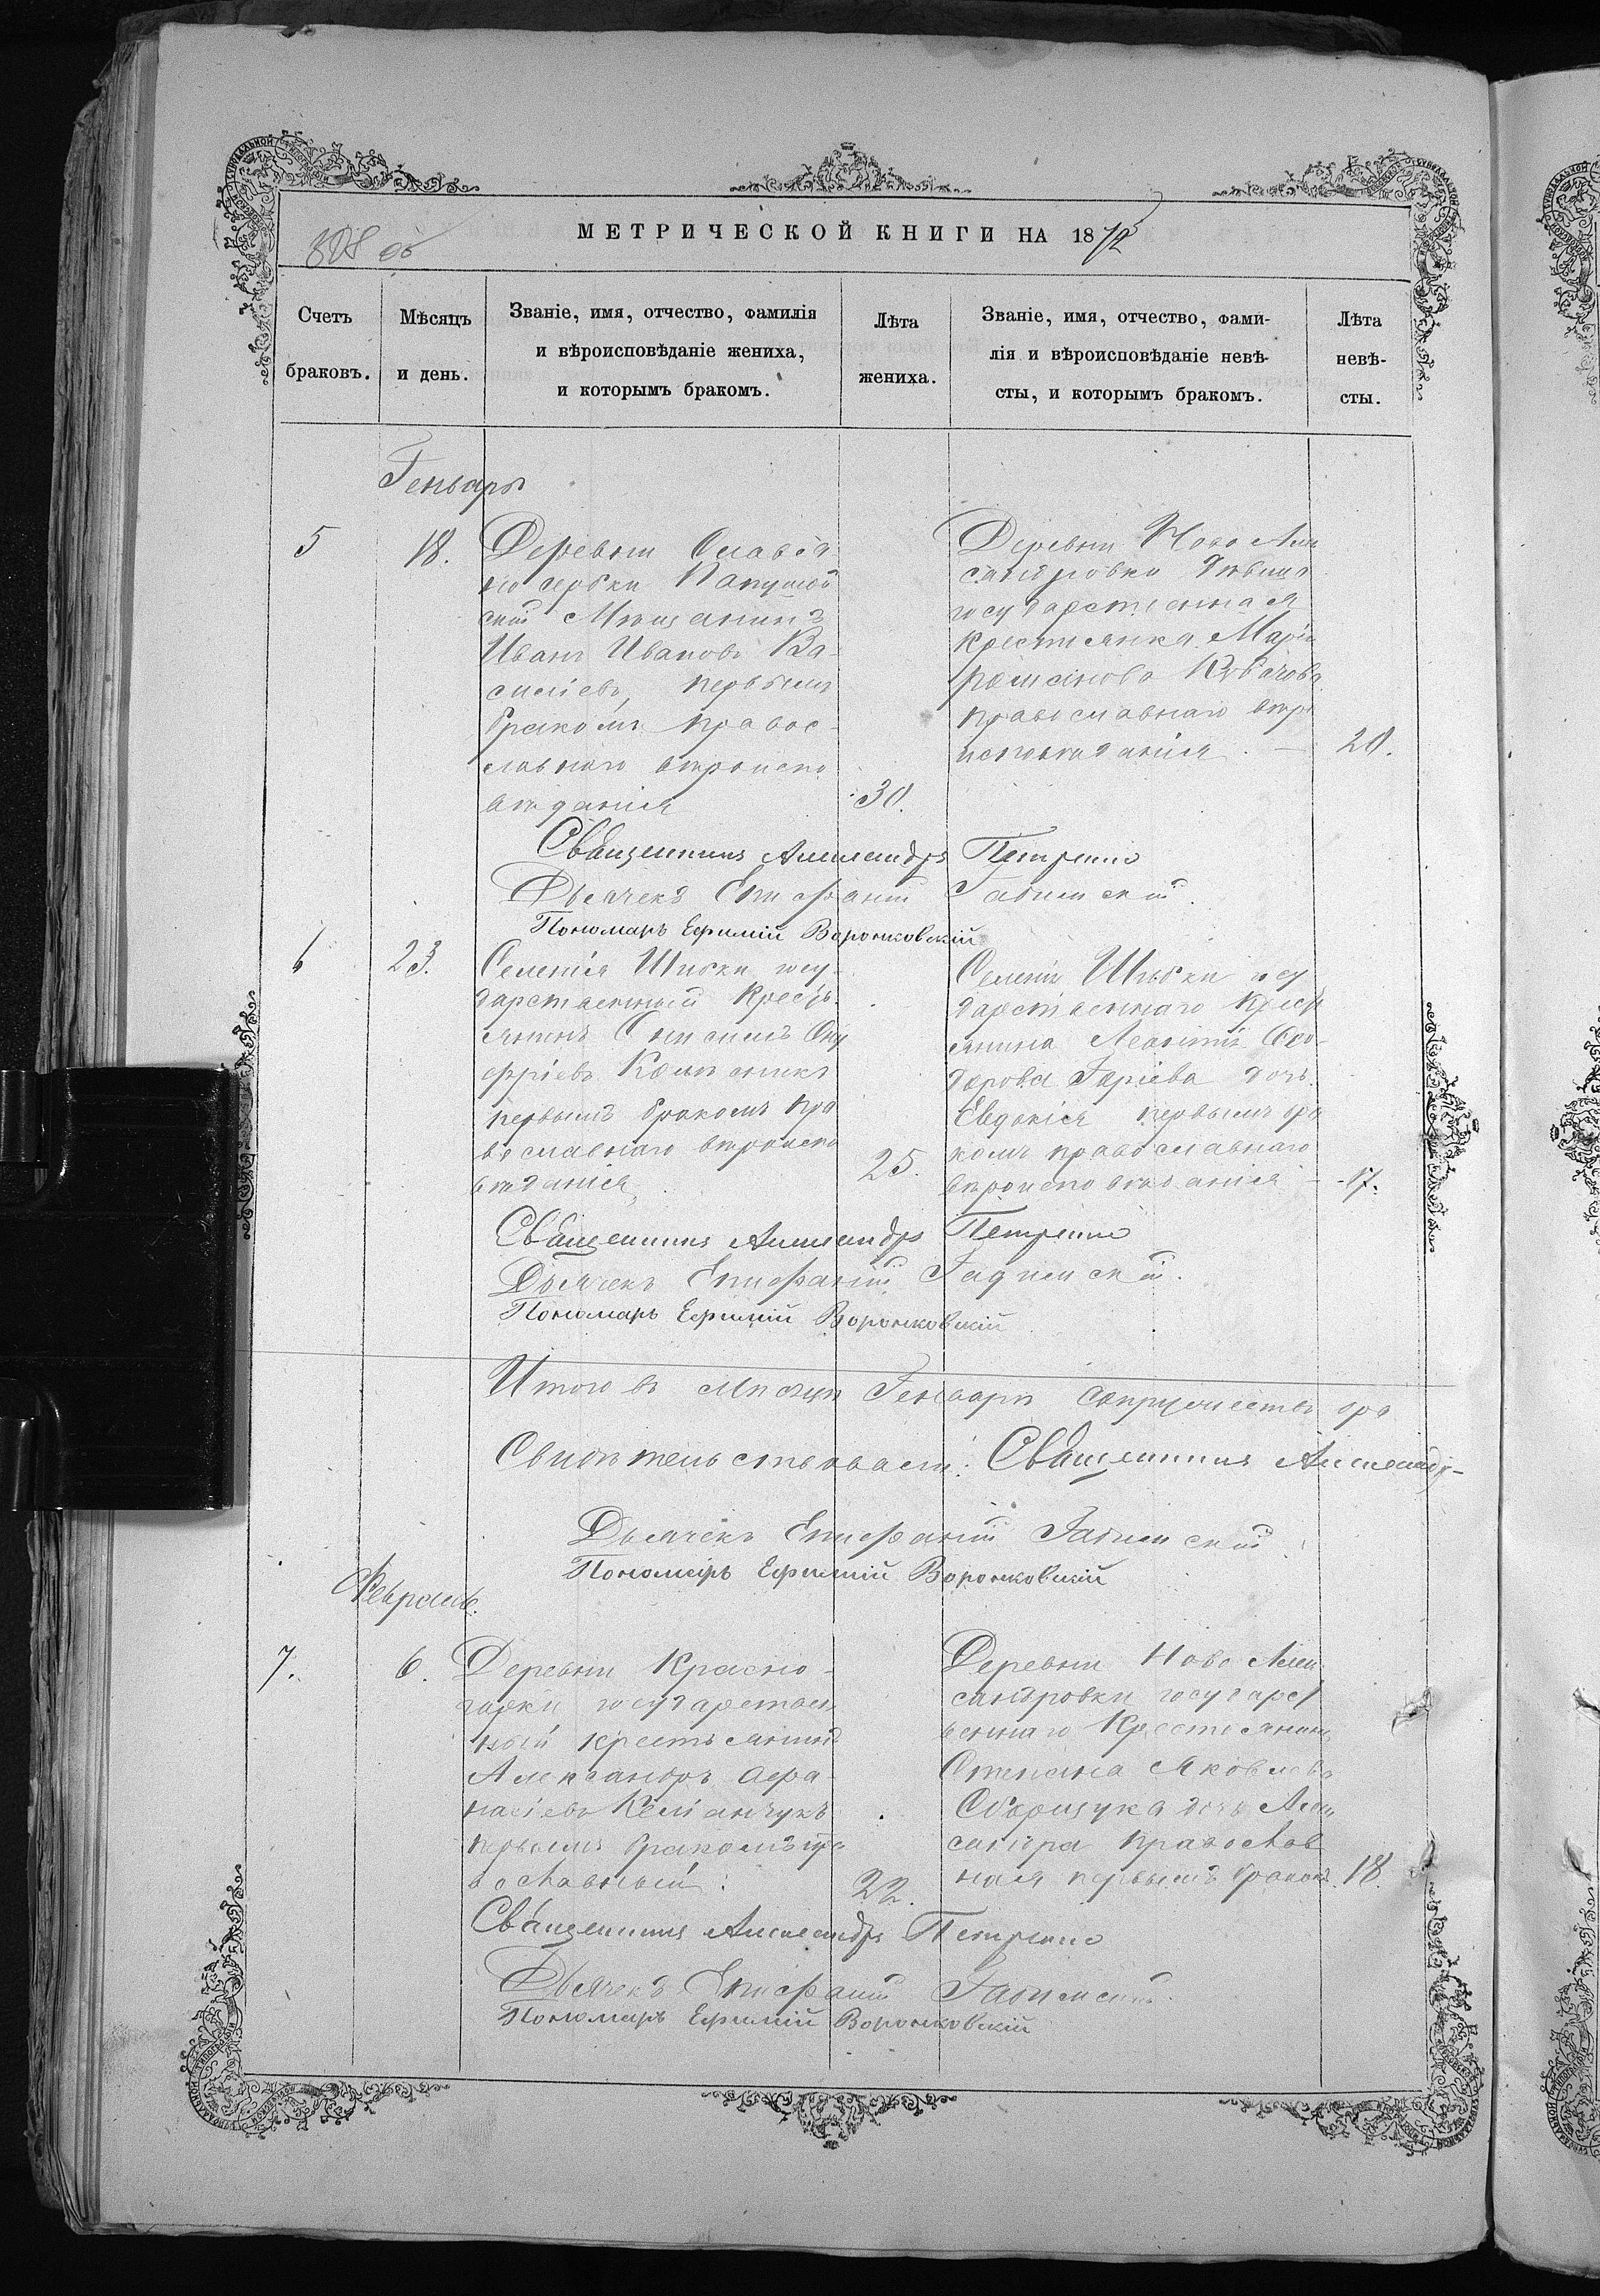 МЕТРИЧЕСКОЙ КНИГИ НА 1872
328 об
Счетъ браковъ.
Мѣсяцъ и день.
Званіе, имя, отчество, фамилія
и вѣроисповѣданіе жениха,
и которымъ бракомъ.
Лѣта жениха.
Званіе, имя, отчество, фами-
лія и вѣроисповѣданіе невѣ-
сты, и которымъ бракомъ.
Лѣта
невѣ-
сты.
Генварь
5
18.
Деревни Славя
но сербки
скій Мѣщанинъ
Иванъ Ивановъ Ва-
силіевъ, первымъ
бракомъ правос-
лавнаго вѣроиспо
вѣданія
30.
Деревни Ново Алек
сандровки дѣвица
государственная
Крестьянка Марія
православнаго вѣро
исповѣданія. —
20.
Священникъ Александръ Петренко
Дьячекъ Епифаній
Пономарь Ефимій Воронковскій
6
23.
Селенія Шибки госу-
дарственный Кресть-
янинъ Онисимъ Ону
фріевъ
первымъ бракомъ пра
вославнаго вѣроиспо
вѣданія
25.
Селенія Шибки госу
дарственнаго Крест
янина Леонтія Ѳео-
дорова дочь
Евдокія первымъ бра
комъ православнаго
вѣроисповѣданія —
17.
Священникъ Александръ Петренко
Дьячекъ Епифаній
Пономарь Ефимій Воронковскій
Итого въ мѣсяцѣ Генварѣ
Свидѣтельствовали: Священникъ Александр-
Дьячекъ Епифаній
Пономарь Ефимій Воронковскій
Февраль.
7.
6.
Деревни Красно-
горки государствен
ной крестьянинъ
Александръ Афа-
насіевъ
первымъ бракомъ пра
вославный.
22.
Деревни Ново Алек
сандровки государст
веннаго Крестьянина
Степана Яковлева
дочь Алек
сандра православ
ная первымъ бракомъ.
18.
Священникъ Александръ Петренко
Дьячекъ Епифаній
Пономарь Ефимій Воронковскій